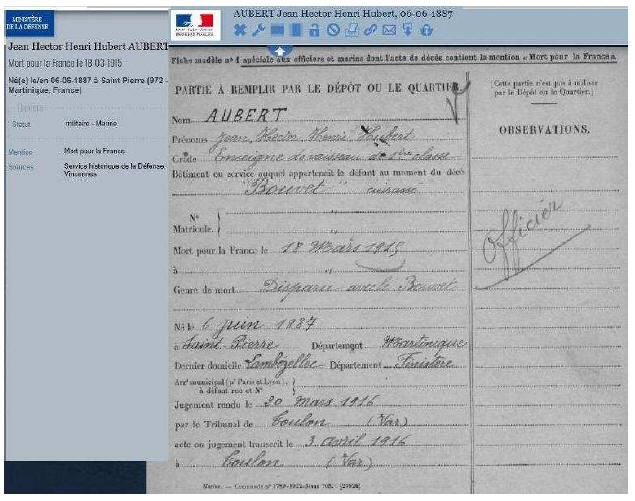 MINISTÈRE
DE LA DÉFENSE
AUBERT Jean Hector Henri Hubert, 06-06-1887
Jean Hector Henri Hubert AUBERT
Mort pour la France le 18-03-1915
Né(e) le/en 06-06-1887 à Saint Pierre (972 -
Martinique, France)
Statut militaire - Marine
Mention Mort pour la France
Sources Service historique de la Défense,
Vincennes
Fiche modèle n° 1 spéciale aux officiers et marins dont l'acte de décès contient la mention « Mort pour la France ».
PARTIE À REMPLIR PAR LE DÉPÔT OU LE QUARTIER
Cette partie n'est pas à utiliser
par le Dépôt ou le Quartier.
OBSERVATIONS.
Officier
Nom AUBERT
Prénoms Jean Hector Henri Hubert
Grade Enseigne de vaisseau de 1ère classe
Bâtiment ou service auquel appartenait le défunt au moment du décès
"Bouvet" cuirassé
N°
Matricule.
Mort pour la France le 18 Mars 1915
à "
Genre de mort Disparu avec le Bouvet
Né le 6 juin 1887
à Saint-Pierre Département Martinique
Dernier domicile Lambezellec Département Finistère
Arrt municipal (pr Paris et Lyon).
à défaut rue et N°
Jugement rendu le 30 Mars 1916
par le Tribunal de Toulon (Var)
acte ou jugement transcrit le 3 avril 1916
à Toulon (Var)
Marine. —